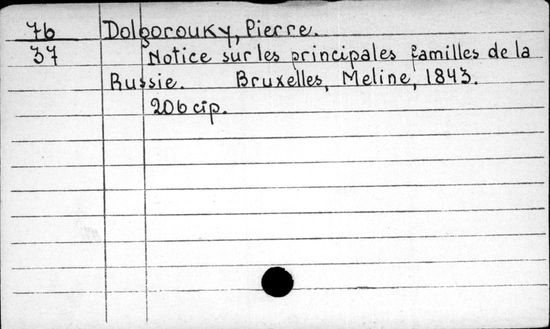 76 Dolgorouky, Pierre.
37 Notice sur les principales familles de la
Russie. Bruxelles, Meline, 1843.
206 стр.